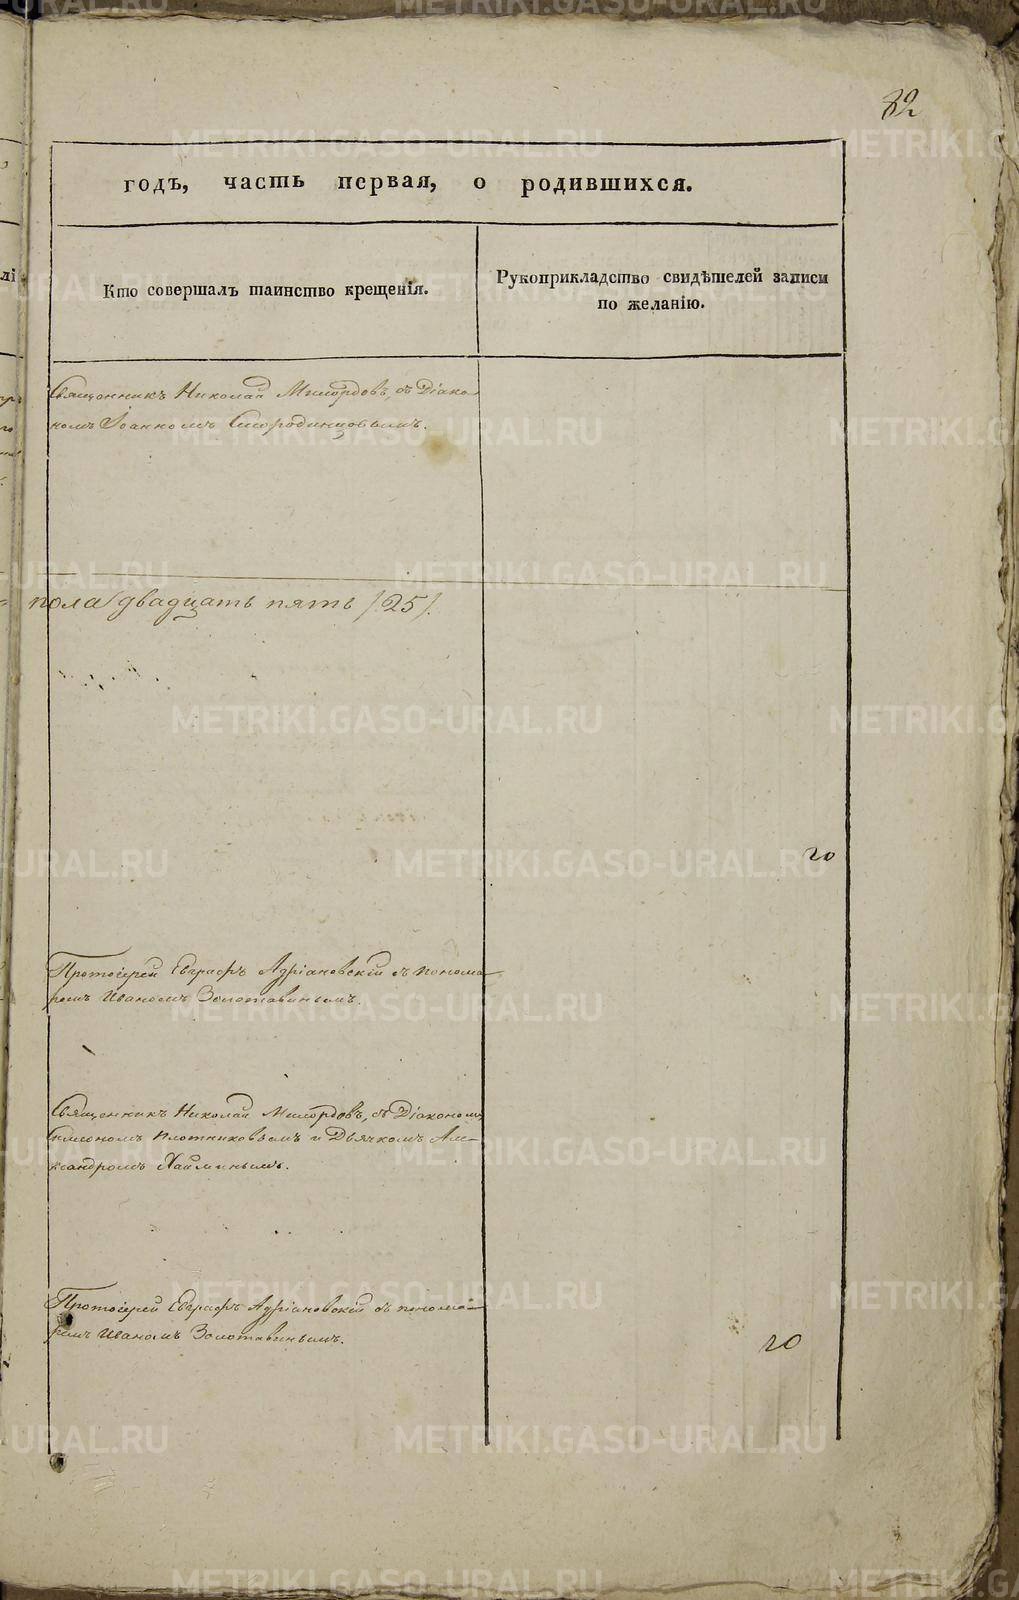 82
годъ, часть первая, о родившихся.
Кто совершалъ таинство крещенія.
Рукоприкладство свидѣтелей записи
по желанію.
Священникъ Николай Милордовъ, съ Діако-
номъ Іоанномъ Смородинцовымъ.
пола двадцать пять /25/.
го
Протоіерей Евграфъ Адріановскій съ понома-
ремъ Иваномъ Золотавинымъ.
Священникъ Николай Милордовъ, съ Діакономъ
Симеономъ Плотниковымъ и Дьячкомъ Але-
ксандромъ Хайминымъ.
Протоіерей Евграфъ Адріановскій съ понома-
ремъ Иваномъ Золотавинымъ.
го
METRIKI.GASO-URAL.RU